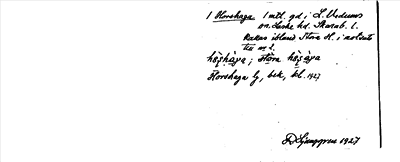 1 Horshaga 1 mtl. gd i L. Vedums
sn. Laske hd. Skarab. l.
Kallas ibland Stora H. i motsats
till nr 2.
hǫṣhàɣa; Stora hǫṣàɣa
Horshaga lj, bek, bl. 1927
D. Ljunggren 1927